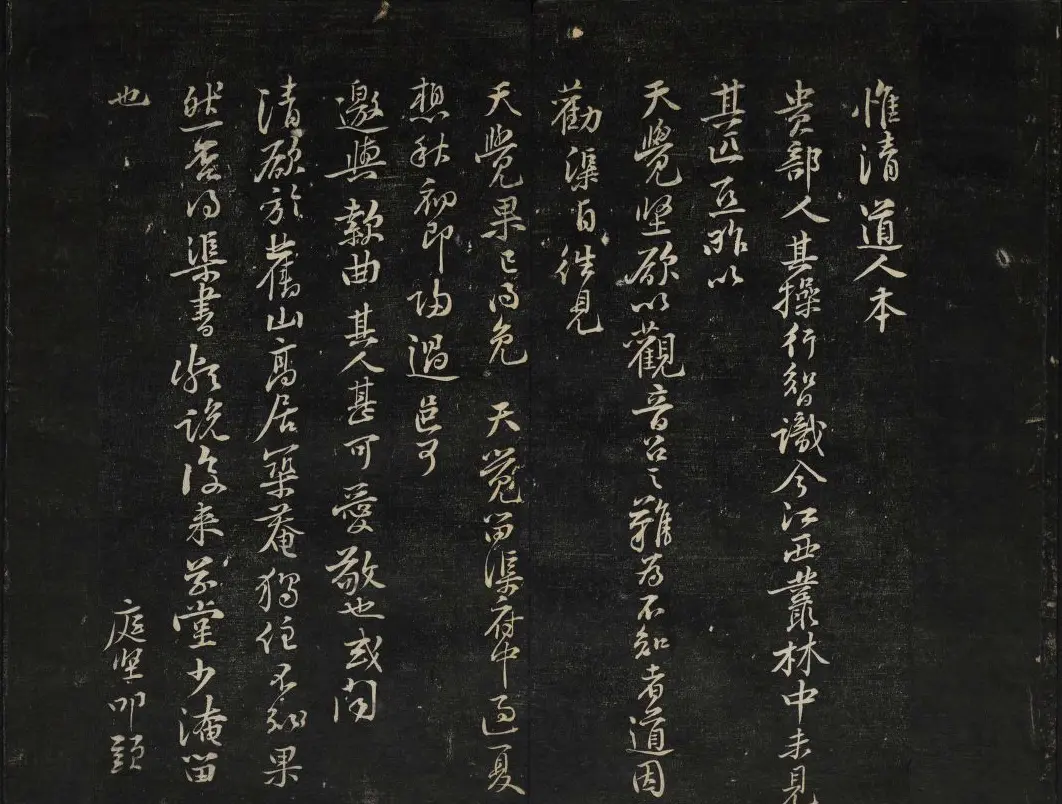 惟清道人本
貴部人其操行智識今江西叢林中未見
其匹亞昨以
天覺堅欲以觀音召之難為不知者道因
勸渠自往見
天覺果已得免 天覺留渠府中過夏
想秋初即歸過邑可
邀與款曲其人甚可愛敬也或聞
清欲於舊山高居築菴獨住不知果
然否得渠書說後來草堂少淹留
也
庭堅叩頭